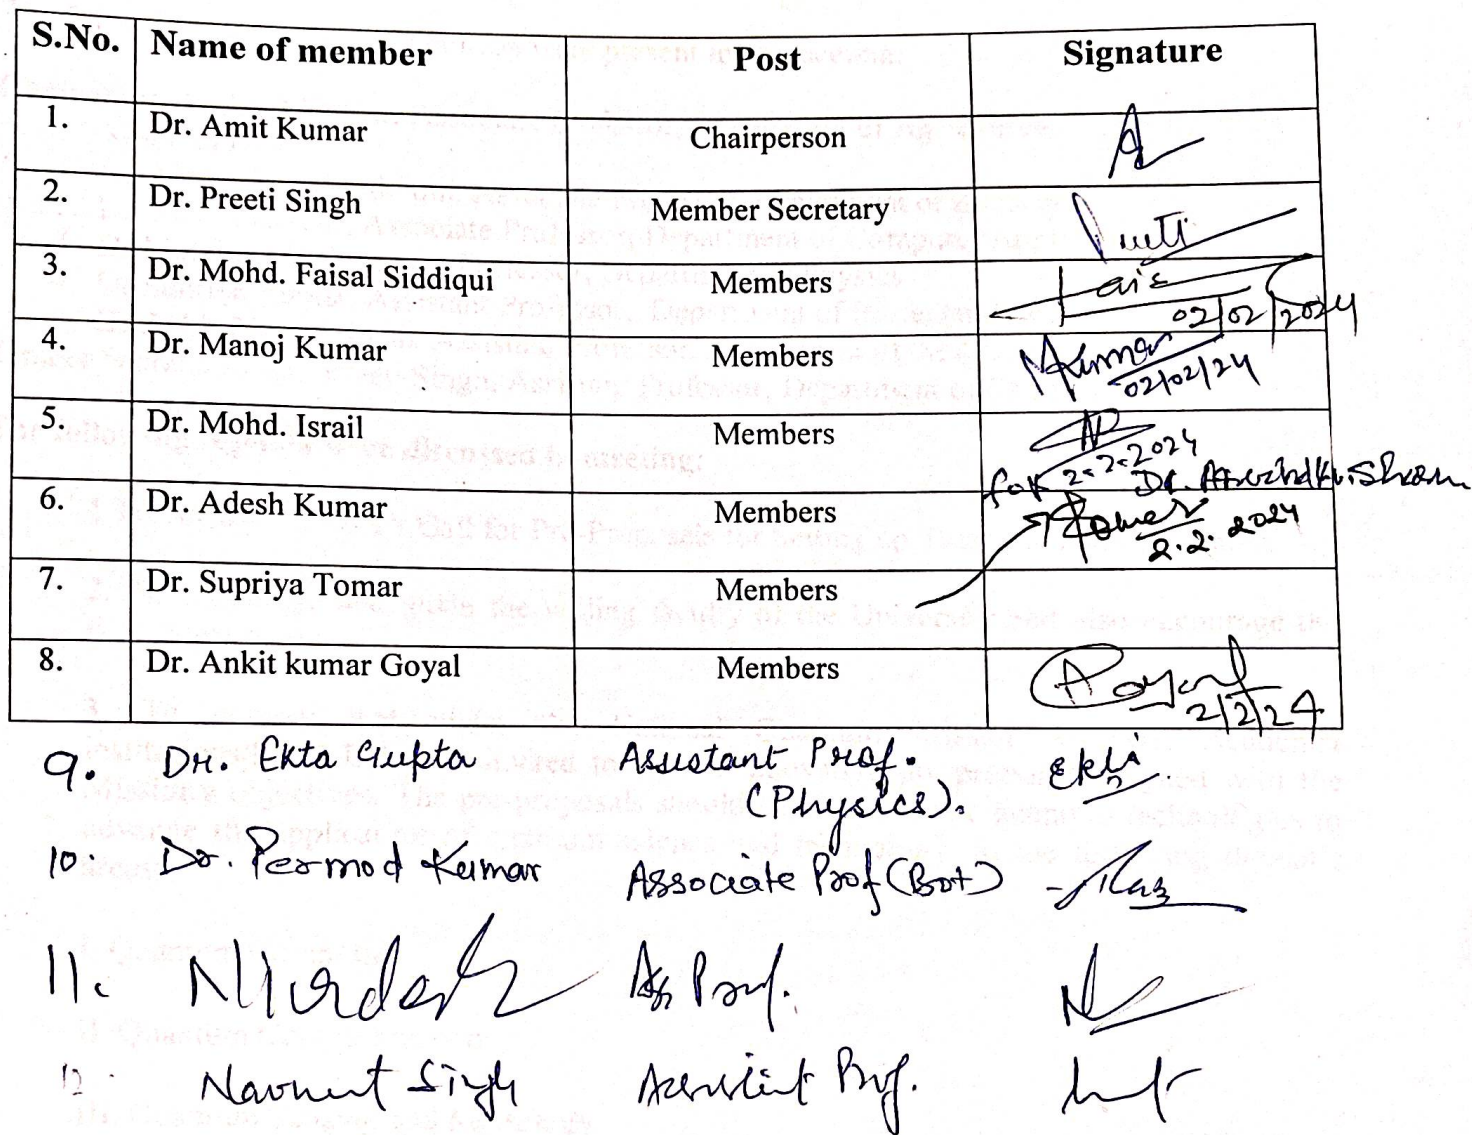 S.No. Name of member Post Signature
1. Dr. Amit Kumar Chairperson
2. Dr. Preeti Singh Member Secretary Preeti
3. Dr. Mohd. Faisal Siddiqui Members Fais
02/02/2024
4. Dr. Manoj Kumar Members MKumar
02/02/24
5. Dr. Mohd. Israil Members
2.2.2024
for Dr.
6. Dr. Adesh Kumar Members
2.2.2024
7. Dr. Supriya Tomar Members
8. Dr. Ankit kumar Goyal Members AGoyal
2/2/24
9. Dr. Ekta Gupta Assistant Prof. Ekta
(Physics).
10. Dr. Permod Kumar Associate Prof (Bot)
11. Nirdesh Ass Prof.
12. Navneet Singh Assistant Prof.